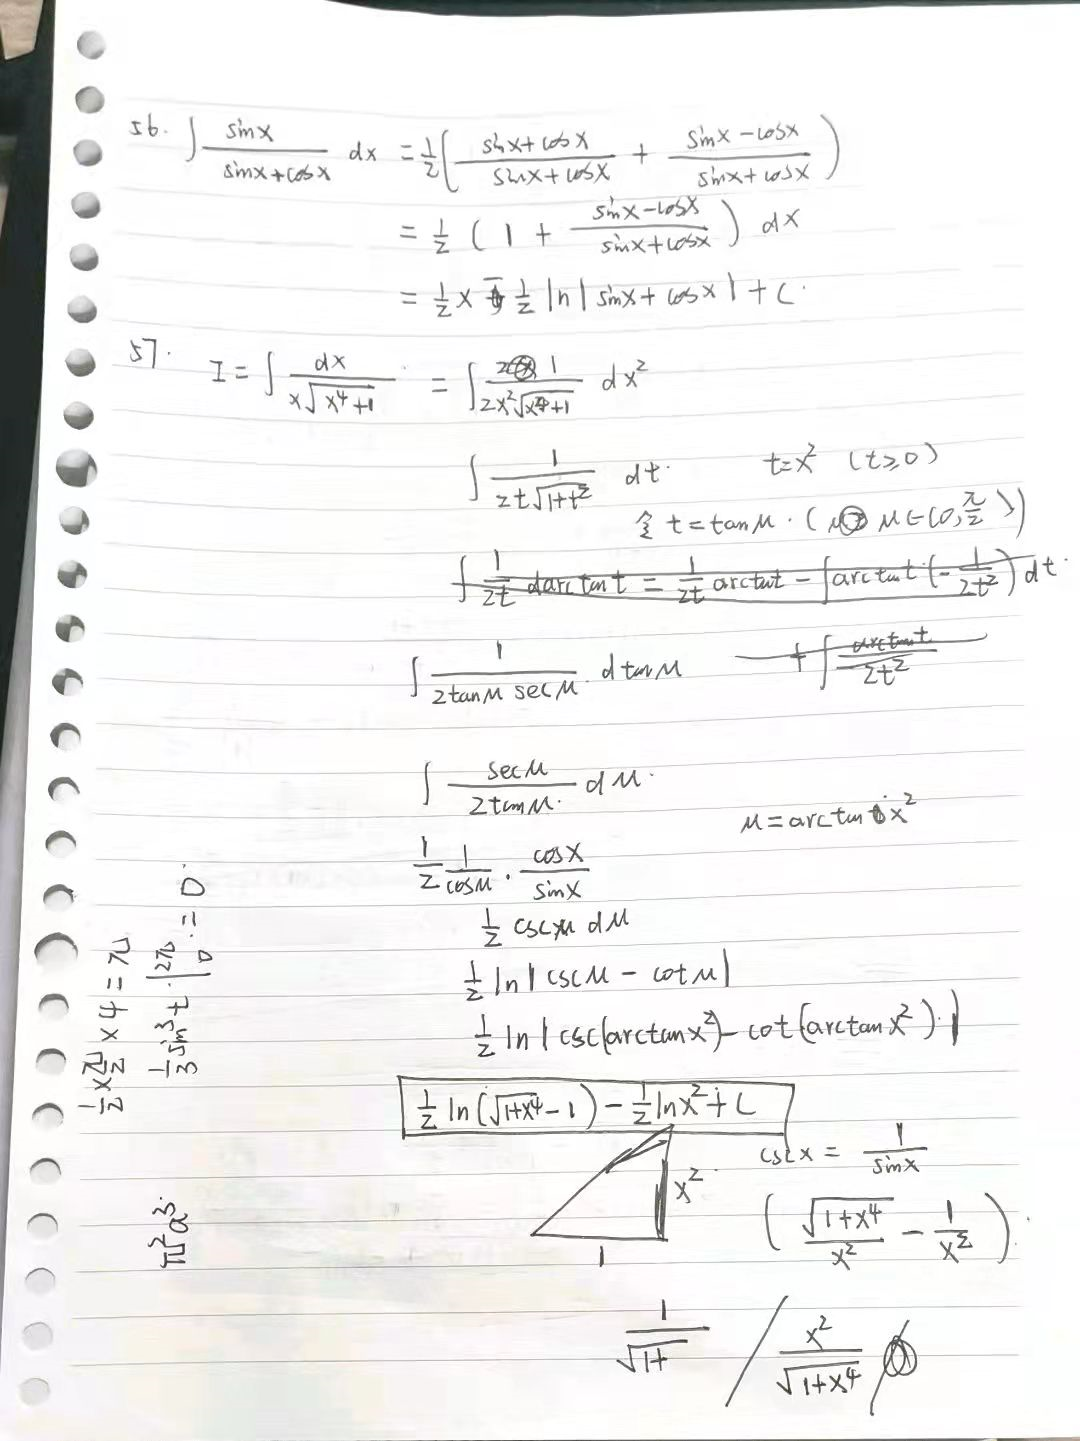 56. ∫ sinx/(sinx+cosx) dx = 1/2( (sinx+cosx)/(sinx+cosx) + (sinx-cosx)/(sinx+cosx) )
= 1/2 ( 1 + (sinx-cosx)/(sinx+cosx) ) dx
= 1/2 x - 1/2 ln|sinx+cosx|+C.
57. I = ∫ dx/(x√(x⁴+1)) = ∫ 1/(2x²√(x⁴+1)) dx²
∫ 1/(2t√(1+t²)) dt. t=x² (t≥0)
令 t=tanμ. ( μ∈(0,π/2) )
∫ 1/2t darctant = 1/2t arctant - ∫arctant·(-1/2t²)dt.
∫ 1/(2tanμ secμ) d tanμ + ∫ arctant/2t²
∫ secμ/2tanμ. dμ.
μ=arctan x²
1/2 1/cosμ · cosx/sinx
1/2 cscμ dμ
1/2 ln|cscμ - cotμ|
1/2 ln|csc(arctanx²)-cot(arctanx²)|
1/2 ln(√(1+x⁴)-1) - 1/2 lnx²+C
cscx = 1/sinx
x²
1
( √(1+x⁴)/x² - 1/x² ).
1/√(1+ / x²/√(1+x⁴) /
1/2 × π/2 × 4 = π
1/3 sin³t |2π 0 = 0.
π²a³